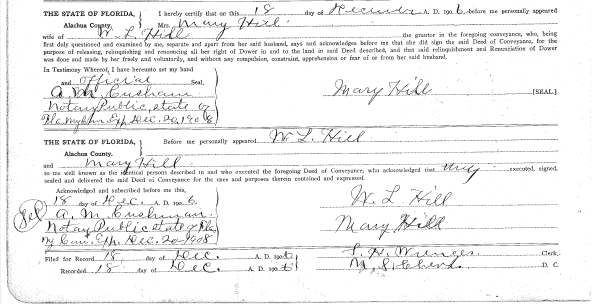 THE STATE OF FLORIDA, I hereby certify that on this 18 day of December A. D. 1906 before me personally appeared
Alachua County. Mrs. Mary Hill
wife of W. L. Hill the grantor in the foregoing conveyance, who, being
first duly questioned and examined by me, separate and apart from her said husband, says and acknowledges before me that she did sign the said Deed of Conveyance, for the
purpose of releasing, relinquishing and renouncing all her right of Dower in and to the land in said Deed described, and that said relinquishment and Renunciation of Dower
was done and made by her freely and voluntarily, and without any compulsion, constraint, apprehension or fear of or from her said husband.
In Testimony Whereof, I have hereunto set my hand
and official Seal.
A. M. Cushman Mary Hill [SEAL.]
Notary Public, state of
Fla My Com. Exp. Dec. 20, 1908
THE STATE OF FLORIDA, Before me personally appeared W. L. Hill
Alachua County.
and Mary Hill
to me well known as the identical persons described in and who executed the foregoing Deed of Conveyance, who acknowledged that they executed, signed,
sealed and delivered the said Deed of Conveyance for the uses and purposes therein contained and expressed.
Acknowledged and subscribed before me this,
18 day of Dec. A. D. 1906. W. L. Hill
A. M. Cushman.
Notary Public state of Fla Mary Hill
My Com. Exp. Dec. 20 1908
Filed for Record 18 day of Dec. A. D. 1906 Clerk.
Recorded 18 day of Dec. A. D. 1906 D. C.